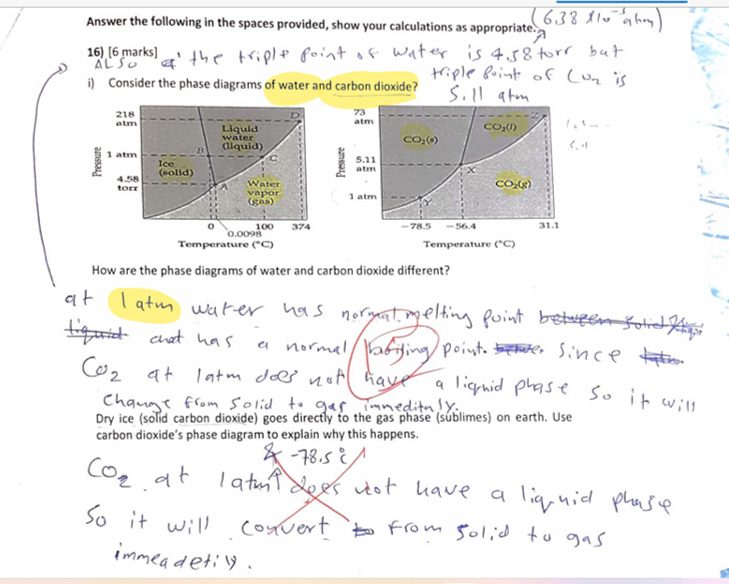 Answer the following in the spaces provided, show your calculations as appropriate. (6.38 x10⁻³ atm)
16) [6 marks] at the triple point of water is 4.58 torr but
ALSO triple point of CO2 is
i) Consider the phase diagrams of water and carbon dioxide? 5.11 atm
218
atm
1 atm
4.58
torr
Pressure
Liquid
water
(liquid)
Ice
(solid)
Water
vapor
(gas)
A
B
C
D
0 100 374
0.0098
Temperature (°C)
73
atm
5.11
atm
1 atm
Pressure
CO₂(s)
CO₂(l)
CO₂(g)
X
Y
Z
−78.5 −56.4 31.1
Temperature (°C)
How are the phase diagrams of water and carbon dioxide different?
at 1 atm water has normal melting point between solid
liquid and has a normal boiling point. Since
CO2 at 1atm does not have a liqnid phase so it will
Change from solid to gas immeditnly.
5
Dry ice (solid carbon dioxide) goes directly to the gas phase (sublimes) on earth. Use
carbon dioxide's phase diagram to explain why this happens.
& -78.5 °C
CO2 at 1atm does not have a liqnid phase
So it will convert to from solid to gas
immeadetily.